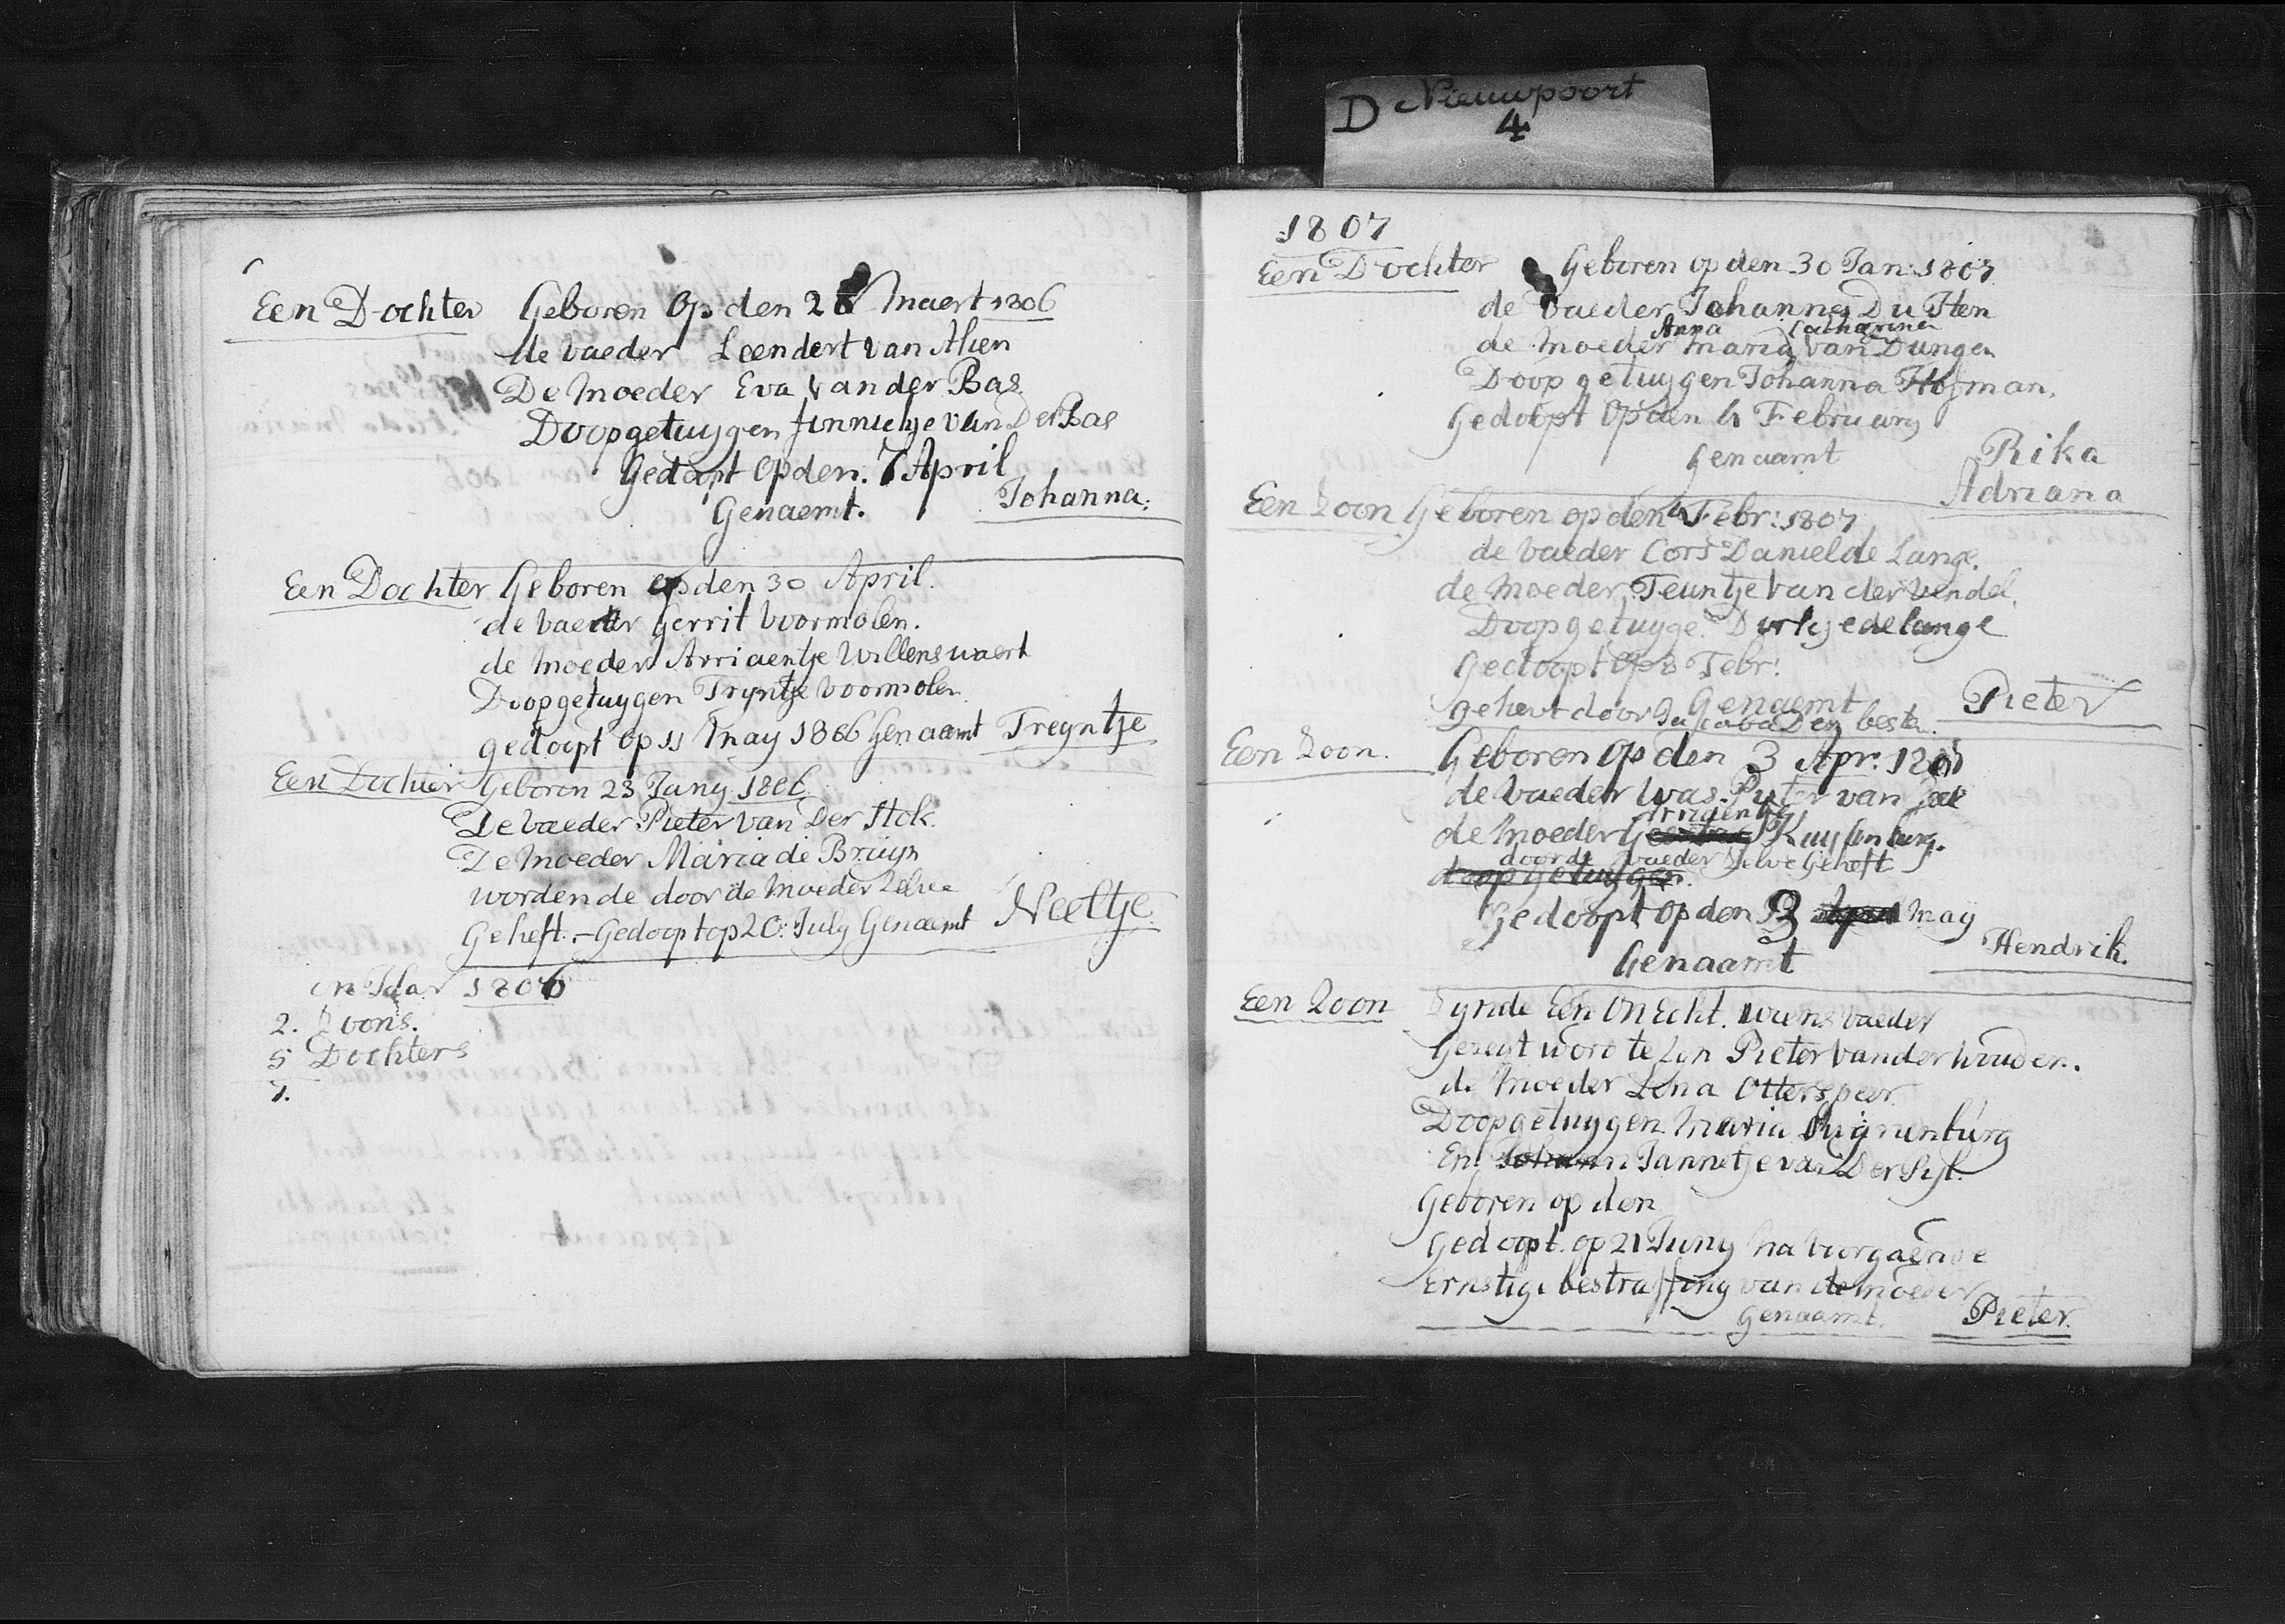 D Nieuwpoort
4
Een Dochter Geboren Op den 28 Maert 1806
de vaeder Leendert van Alien
De Moeder Eva van der Bas
Doopgetuygen van Der Bas
Gedoopt Op den. 7 April
Genaemt. Johanna.
Een Dochter Geboren op den 30 April.
de vaeder Gerrit Voormolen.
de Moeder Arriaentje Willenswaert
Doopgetuygen Tryntje Voormolen
gedoopt op 11 May 1806 Genaemt Treyntje
Een Dochter Geboren 23 Juny 1806
De vaeder Pieter van Der Stok.
De Moeder Maria de Bruyn
wordende door de Moeder Zelve
Geheft. - Gedoopt op 20: July Genaemt Neeltje
in Jaar 1806
2. Zoons.
5 Dochters
7.
1807
Een Dochter Geboren op den 30 Jan: 1807
de vaeder Johannes Du Hen
Anna Catharina
de Moeder Maria van Dungen
Doop getuygen Johanna Hofman.
Gedoopt Op den 4 February
Genaamt Rika
Adriana
Een Zoon Geboren op den 4 Febr: 1807
de vaeder Cors Daniel de Lange.
de Moeder Teuntje van der Vendel.
Doopgetuyge. Dirkje de lange
Gedoopt Op 8 Febr:
Genaemt Pieter
gehevt door Jacoba Den beste.
Een Zoon. Geboren Op den 3 Apr: 1807
de vaeder was Pieter van
Arrigentje
de Moeder Kuylenburg.
door de vaeder Selve Geheft
doop getuygen.
Gedoopt op den 3 April May
Genaamt Hendrik.
Een Zoon Zynde Een Onecht. wiens vaeder
Gezegt word te zyn Pieter van der Wouden.
de Moeder Lena Otterspeer
Doopgetuygen Maria
En Johann Jannetje van Der Pyl.
Geboren op den
Gedoopt. op 21 Juny na voorgaende
Ernstige bestraffing van de Moeder
Genaamt. Pieter.